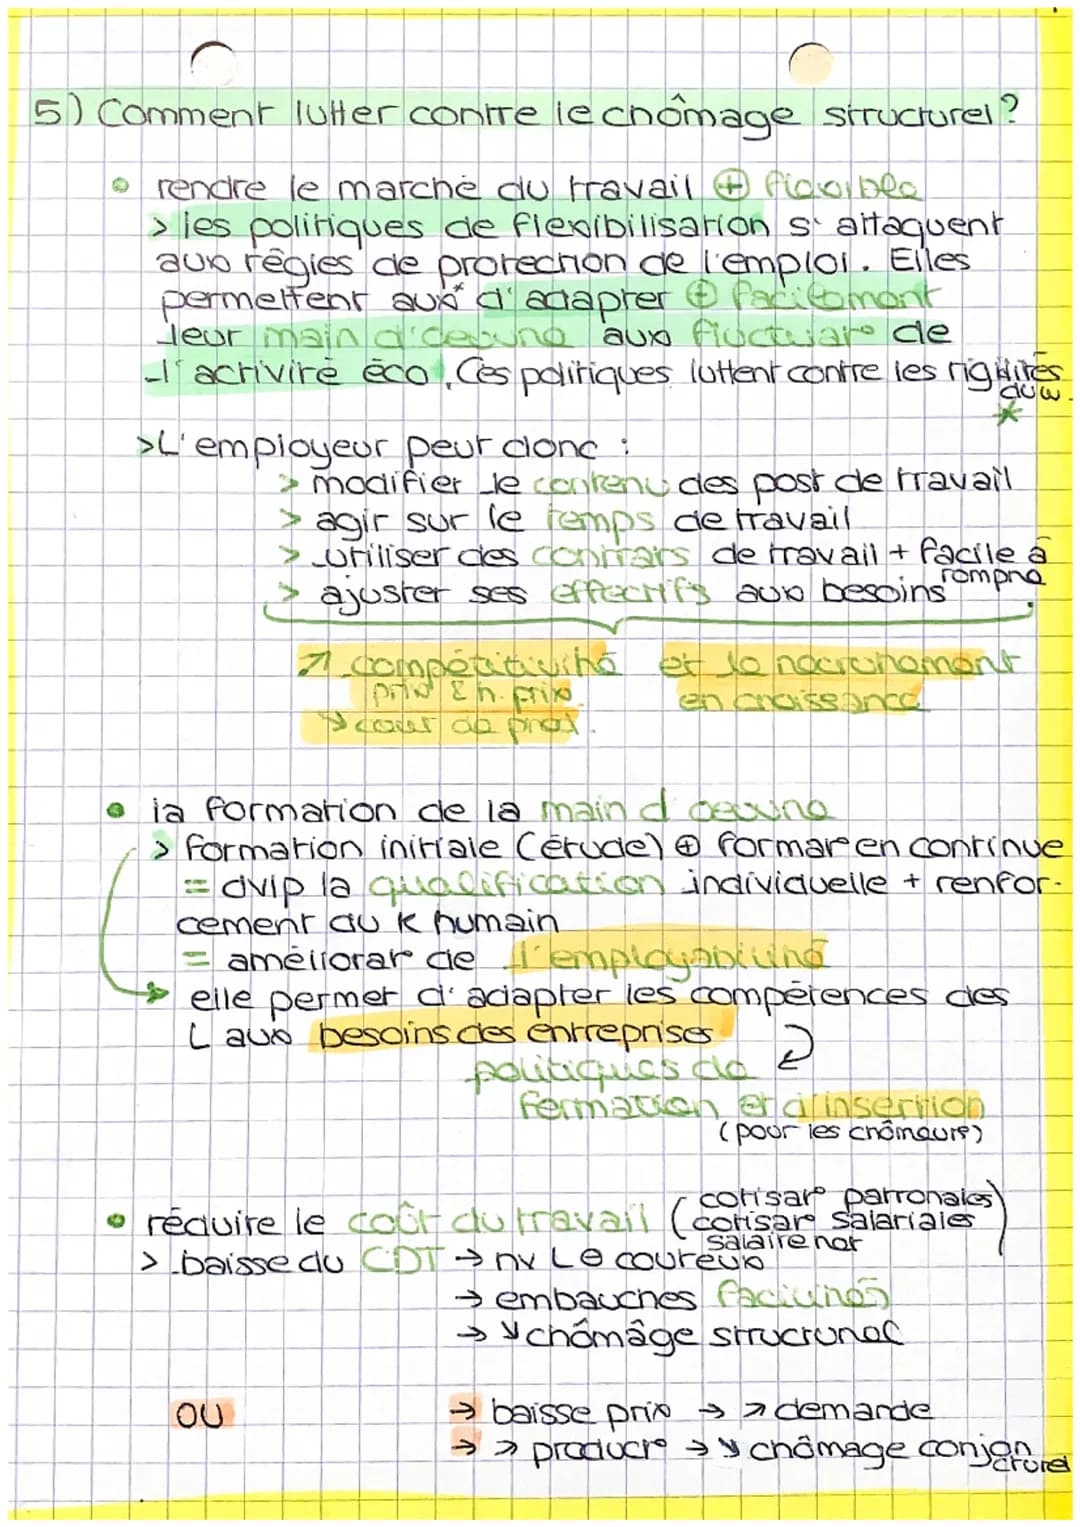 5) Comment lutter contre le chômage structurel ?
• rendre le marché du travail ⊕ flexible
> les politiques de flexibilisation s' attaquent
aux règles de protection de l'emploi. Elles
permettent aux* d'adapter ⊕ facilement
leur main d'oeuvre aux fluctuat° de
l'activité éco. Ces politiques luttent contre les rigidités
du w.
*
> L'employeur peut donc :
> modifier le contenu des post de travail
> agir sur le temps de travail
> utiliser des contrats de travail + facile à
rompre
> ajuster ses effectifs aux besoins
↗ compétitivité et
prix & h. prix en croissance
↘ cout de prod.
• la formation de la main d'oeuvre
> formation initiale (étude) ⊕ format° en continue
= dvlp la qualification individuelle + renfor-
cement du K humain
= améliorat° de l'employabilité
→ elle permet d'adapter les compétences des
L aux besoins des entreprises
politiques de
formation et d'insertion
(pour les chômeurs)
• réduire le coût du travail (cotisat° patronales
cotisat° salariales
salaire net)
> baisse du CDT → nv L ⊖ couteux
→ embauches facilités
→ ↘ chômâge structurel
OU → baisse prix → ↗ demande
→ ↗ product° → ↘ chômage conjon
cturel